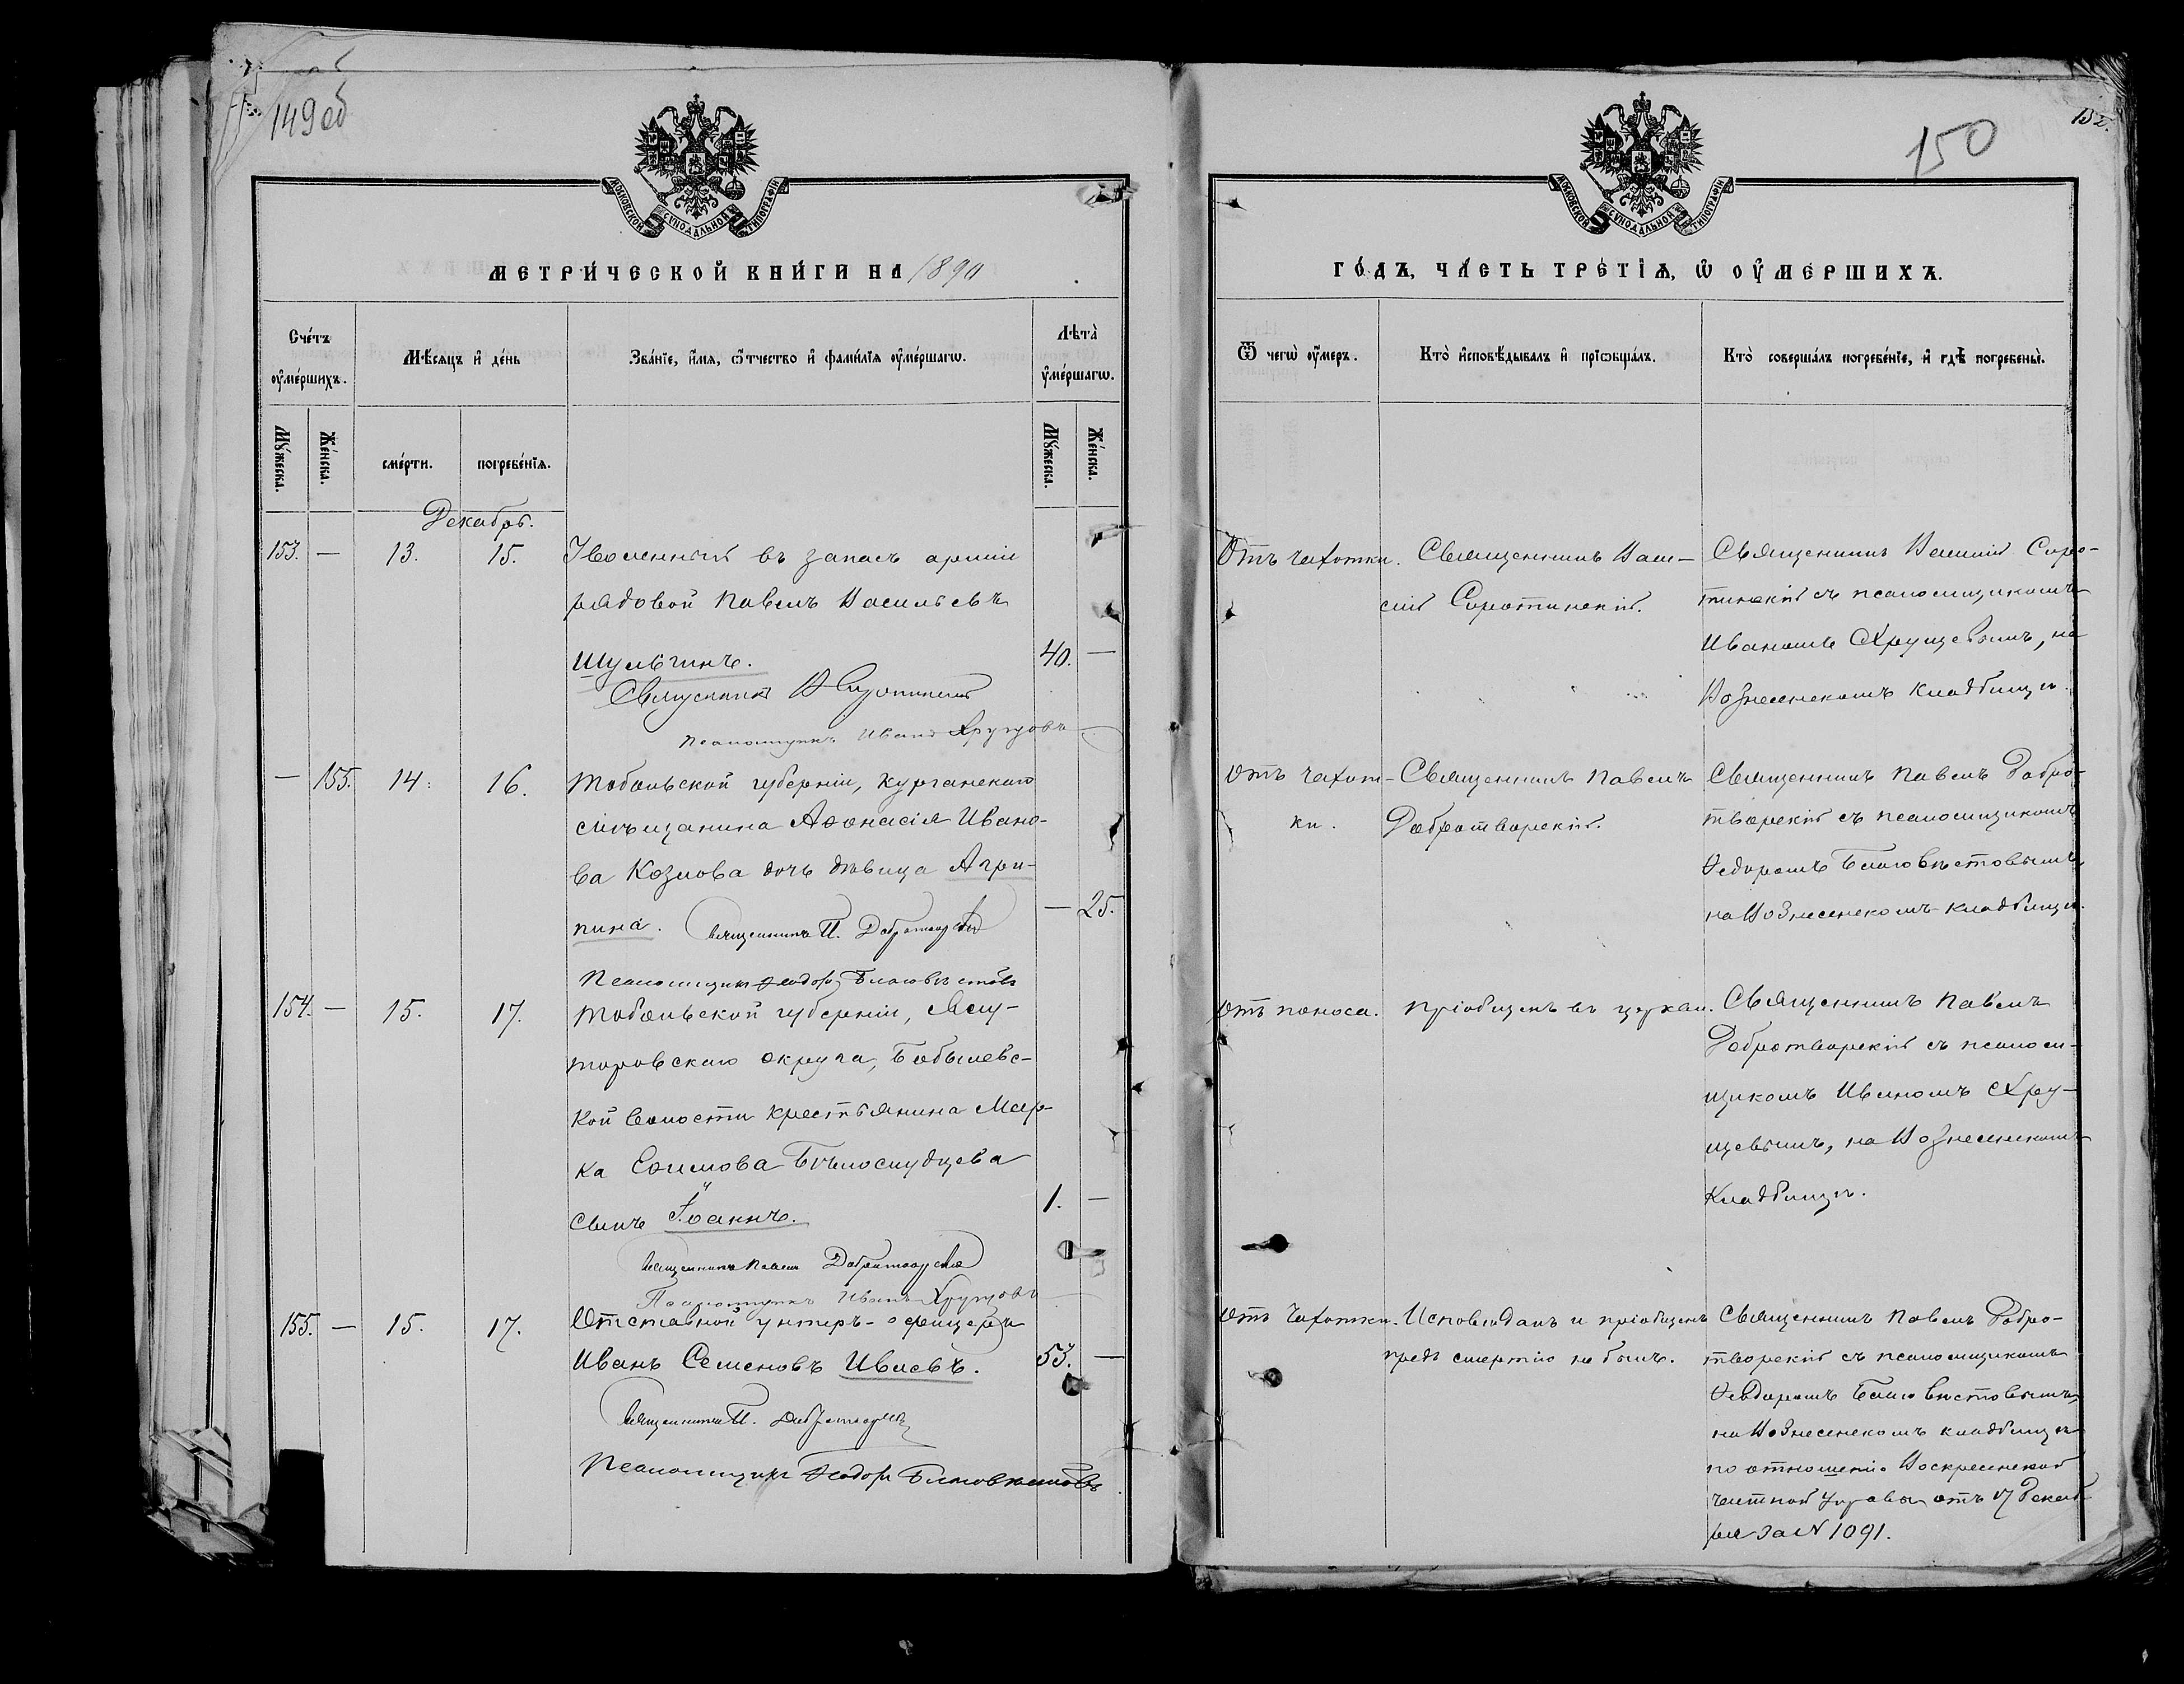 149 об
МОСКОВСКОЙ СѴНОДАЛЬНОЙ ТИПОГРАФІИ
МЕТРИ́ЧЕСКОЙ КНИ́ГИ НА 1890
Сче́тъ ᲂу҆ме́ршихъ.
Мѣ́сяцъ и҆ де́нь
Зва́нїе, и҆́мя, ѻ҆́тчество и҆ фами́лїя ᲂу҆ме́ршагѡ.
Лѣ́та ᲂу҆ме́ршагѡ.
Мꙋ́жеска.
Же́нска.
сме́рти.
погребе́нїя.
Мꙋ́жеска.
Же́нска.
Декабрь.
153. — 13. 15. Уволенный въ запасъ арміи
рядовой Павелъ Васильевъ
Шульгинъ. 40. —
Священникъ В Сиротинскій
Псаломщикъ Иванъ Хрущовъ
— 155. 14. 16. Тобольской губерніи, Курганскаго
мѣщанина Аѳонасія Ивано-
ва Козлова дочь дѣвица Агри-
пина. — 25.
Священникъ П. Добротворскій
Псаломщикъ Ѳеодоръ Благовѣстовъ
154. — 15. 17. Тобольской губерніи, Ялу-
торовскаго округа, Бобылевс-
кой волости крестьянина Мар-
ка Ефимова Бѣлослудцева
сынъ Іоаннъ. 1. —
Священникъ Павелъ Добротворскій
Псаломщикъ Иванъ Хрущовъ
155. — 15. 17. Отставной унтеръ-офицеръ
Иванъ Семеновъ Ивлевъ. 53. —
Священникъ П. Добротворскій
Псаломщикъ Ѳеодоръ Благовѣстовъ
150
152.
МОСКОВСКОЙ СѴНОДАЛЬНОЙ ТИПОГРАФІИ
ГО́ДЪ, ЧА́СТЬ ТРЕ́ТЇѦ, Ѡ҆ ОУ҆МЕ́РШИХЪ.
Ѿ чегѡ̀ ᲂу҆́меръ.
Кто̀ и҆сповѣ́дывалъ и҆ прїѡбща́лъ.
Кто̀ соверша́лъ погребе́нїе, и҆ гдѣ̀ погребены̀.
Отъ чахотки. Священникъ Васи-
лій Сиротинскій.
Священникъ Василій Сиро-
тинскій съ псаломщикомъ
Иваномъ Хрущевымъ, на
Вознесенскомъ кладбищѣ.
Отъ чахот-
ки.
Священникъ Павелъ
Добротворскій.
Священникъ Павелъ Добро-
творскій съ псаломщикомъ
Ѳедоромъ Благовѣстовымъ,
на Вознесенскомъ кладбищѣ.
Отъ поноса. Пріобщенъ въ церкви.
Священникъ Павелъ
Добротворскій съ псалом-
щикомъ Иваномъ Хру-
щевымъ, на Вознесенскомъ
кладбищѣ.
Отъ чахотки. Исповѣданъ и пріобщенъ
предъ смертію не былъ.
Священникъ Павелъ Добро-
творскій съ псаломщикомъ
Ѳеодоромъ Благовѣстовымъ,
на Вознесенскомъ кладбищѣ
по отношенію Воскресенской
частной управы отъ 17 декаб
ря за № 1091.